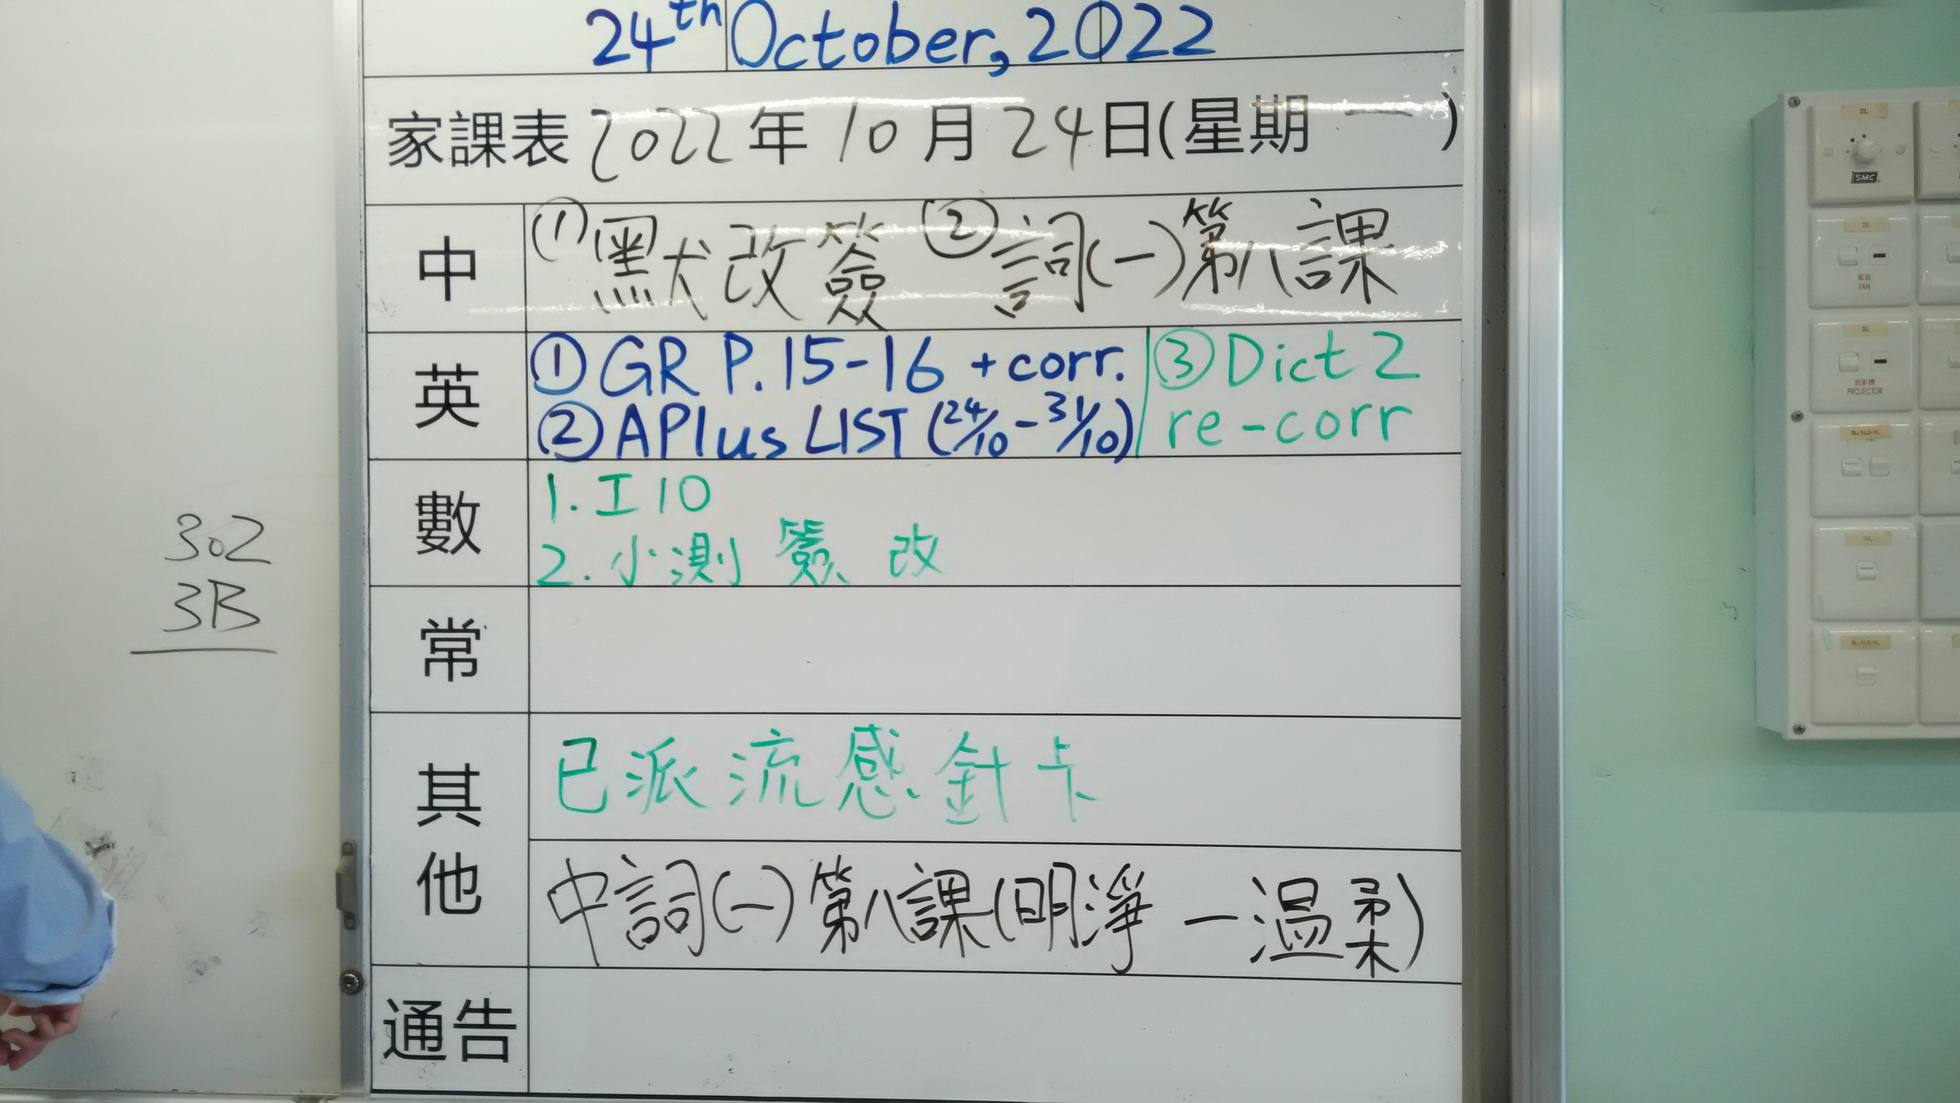 24th October, 2022
家課表 2022年10月24日(星期一)
中 ①默改簽 ②詞(一)第八課
英 ①GR P.15-16 +corr.
②APlus LIST (24/10-31/10)
③Dict 2
re-corr
數 1. I10
2. 小測 簽 改
常
其他 已派流感針卡
中詞(一)第八課(明淨一溫柔)
通告
302
3B
SMC
FAN
PROJECTOR